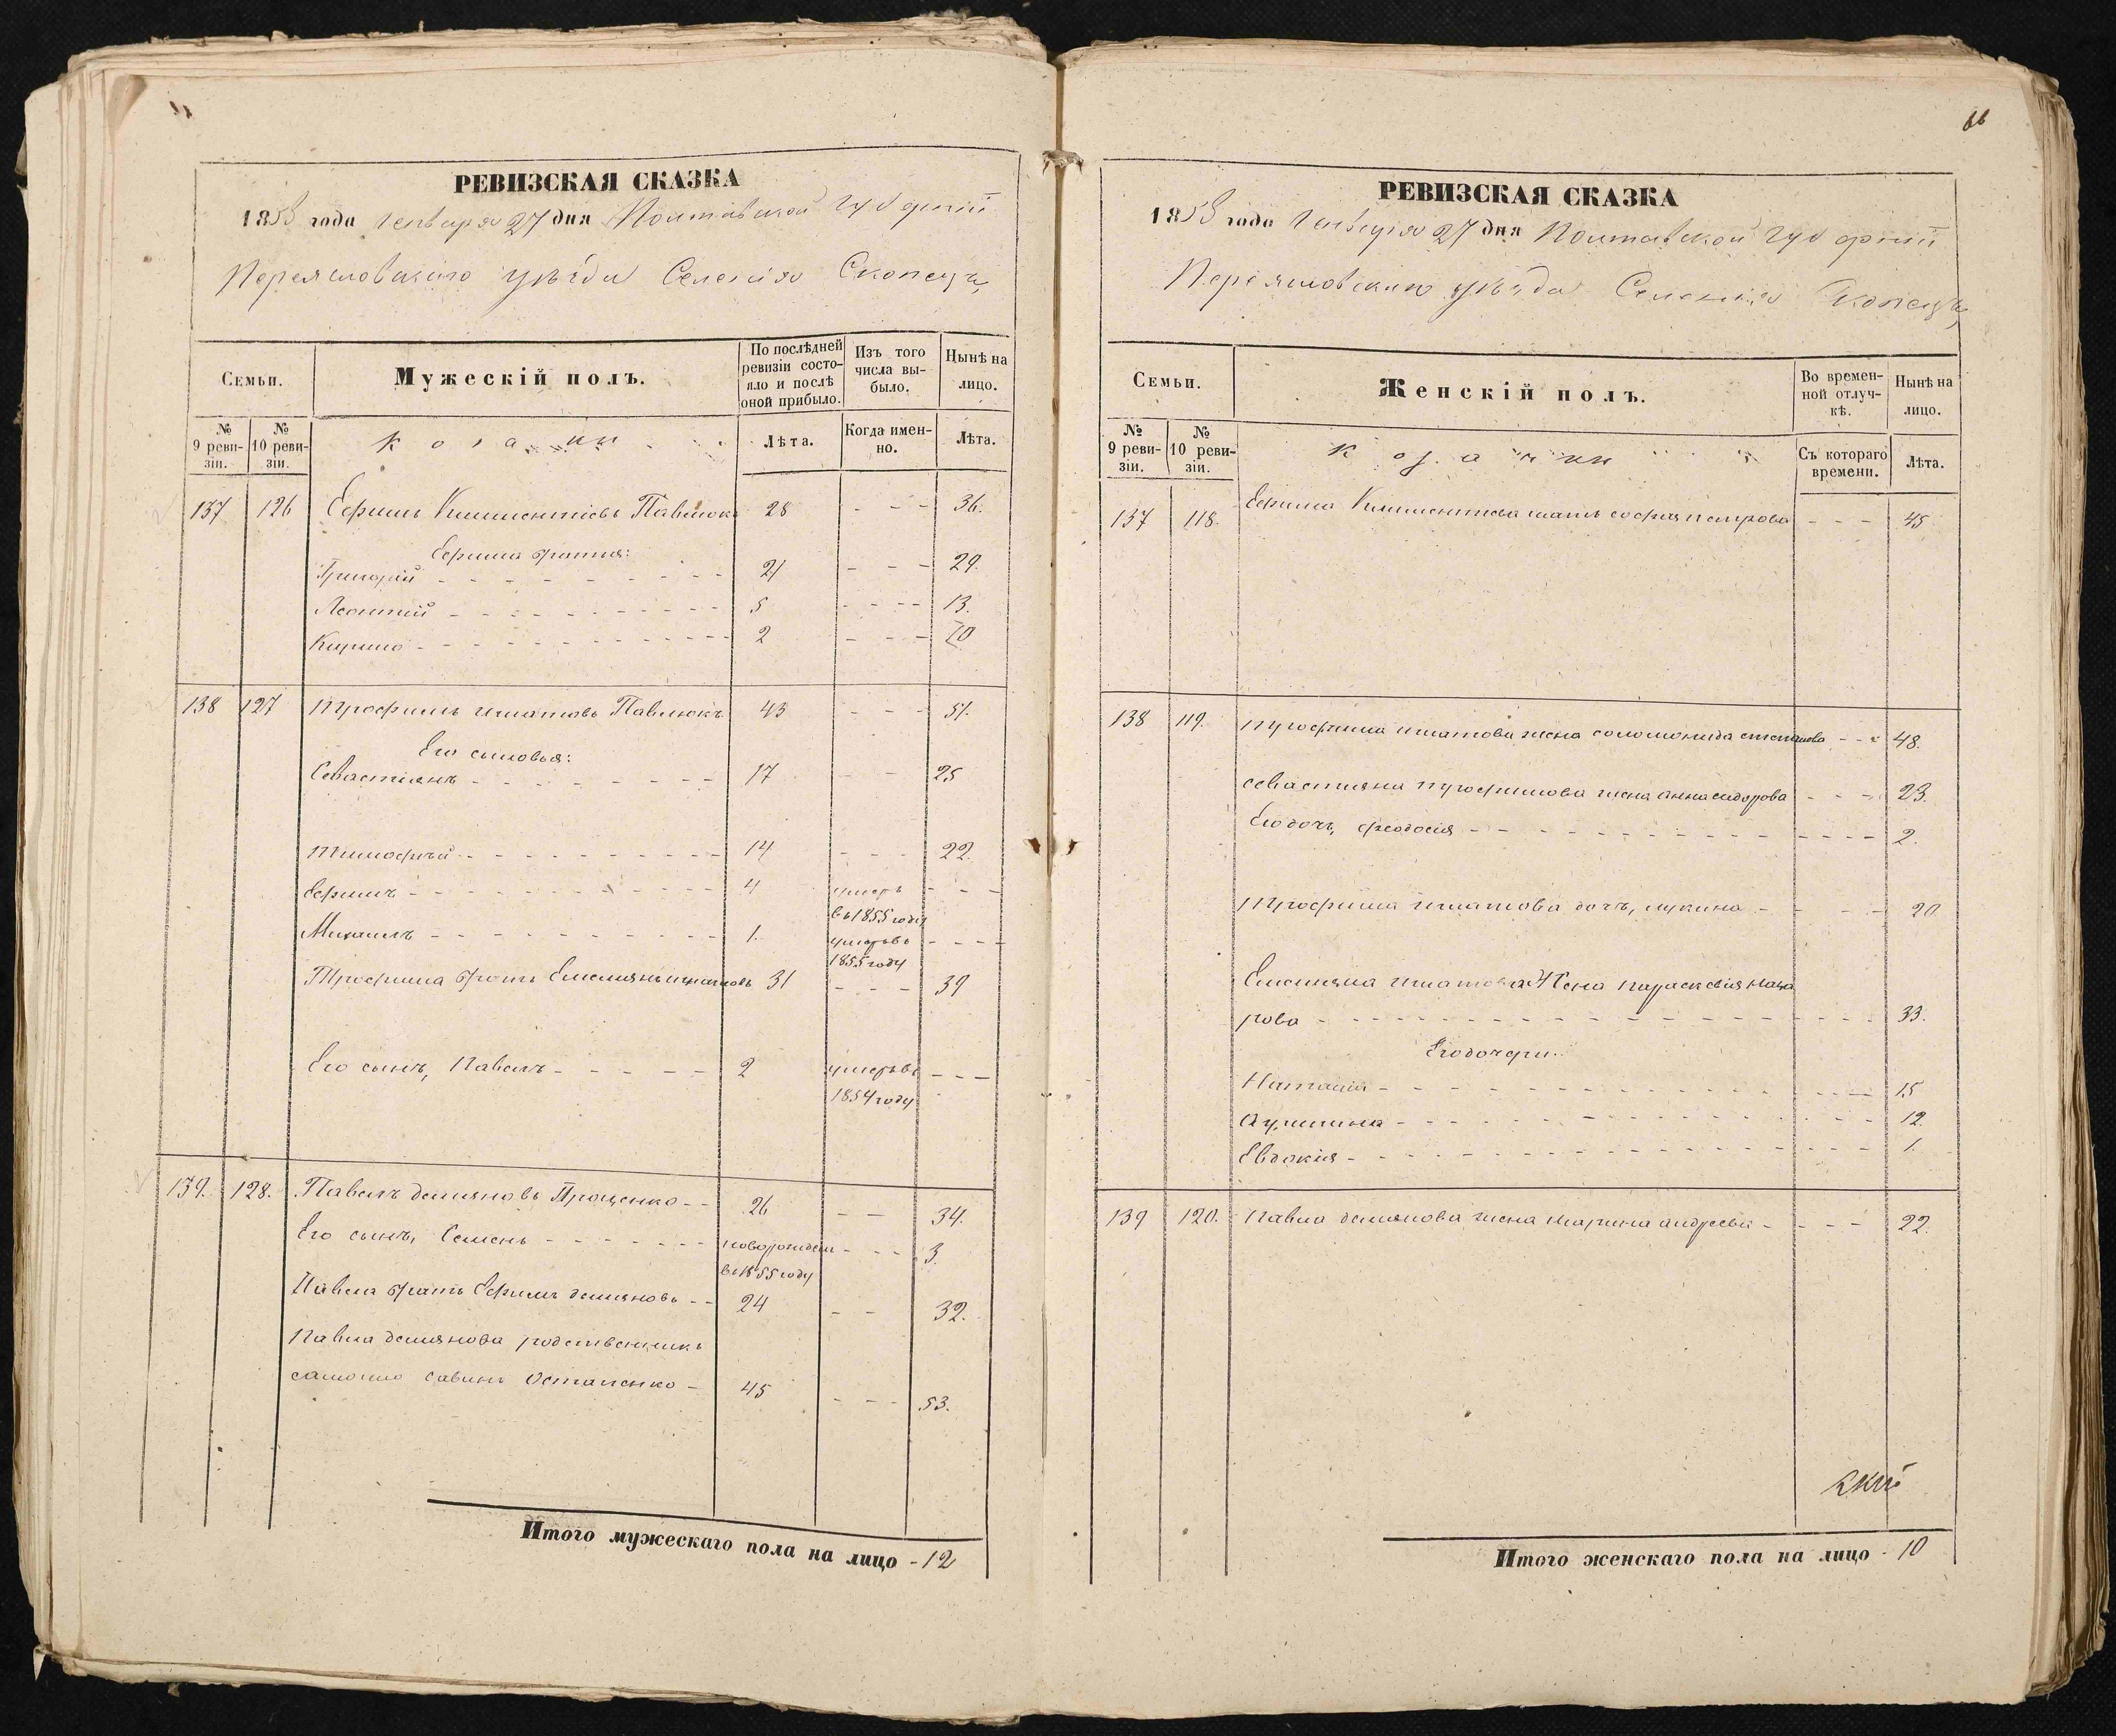 РЕВИЗСКАЯ СКАЗКА
1858 года Генваря 27 дня Полтавской губернiи
Переяславскаго уѣзда Селенiя Скопецъ,
Семьи.
Мужескiй полъ.
По послѣдней ревизiи состояло и послѣ оной прибыло.
Изъ того числа выбыло.
Нынѣ на лицо.
№ 9 ревизiи.
№ 10 ревизiи.
Козаки
Лѣта.
Когда именно.
Лѣта.
137 126 Ефимъ Климентiевъ Павлюкъ 28 - - - 36.
Ефима братья:
Григорiй 21 - - - 29.
Леонтiй 5 - - - 13.
Кирило 2 - - - 10
138 127 Трофимъ Игнатовъ Павлюкъ 43 - - - 51.
Его сыновья:
Севастiянъ 17 - - - 25
Тимофѣй 14 - - - 22.
Ефимъ 4 умеръ - - -
въ 1855 году
Михаилъ 1. умеръ въ - - -
1855 году
Трофима братъ Емельянъ Игнатовъ 31 - - - 39
Его сынъ, Павелъ 2 умеръ въ - - -
1854 году
139. 128. Павелъ Демяновъ Проценко 26 - - 34.
Его сынъ, Семенъ новорожден - - - 3.
въ 1855 году
Павла братъ Ефимъ Демяновъ 24 - - 32.
Павла Демянова родственникъ
Самойло Савинъ Остапенко 45 - - - 53.
Итого мужескаго пола на лицо - 12
66
РЕВИЗСКАЯ СКАЗКА
1858 года Генваря 27 дня Полтавской губернiи
Переяславскаго уѣзда Селенiя Скопецъ,
Семьи.
Женскiй полъ.
Во временной отлучкѣ.
Нынѣ на лицо.
№ 9 ревизiи.
№ 10 ревизiи.
Козачки
Съ котораго времени.
Лѣта.
137 118. Ефима Климентiева мать Софiя Петрова - - - 45
138 119. Трофима Игнатова жена Соломонида Степанова - - - 48.
Севастияна Трофимова жена Анна Сидорова - - - 23.
Его дочь, Феодосiя 2.
Трофима Игнатова дочь, 20
Емелияна Игнатова Жена Параскевiя Наза
рова 33.
Его дочери:
Наталiя 15
12.
Евдокiя 1.
139 120. Павла Демянова жена Марина Андреева - - - 22.
Итого женскаго пола на лицо - 10